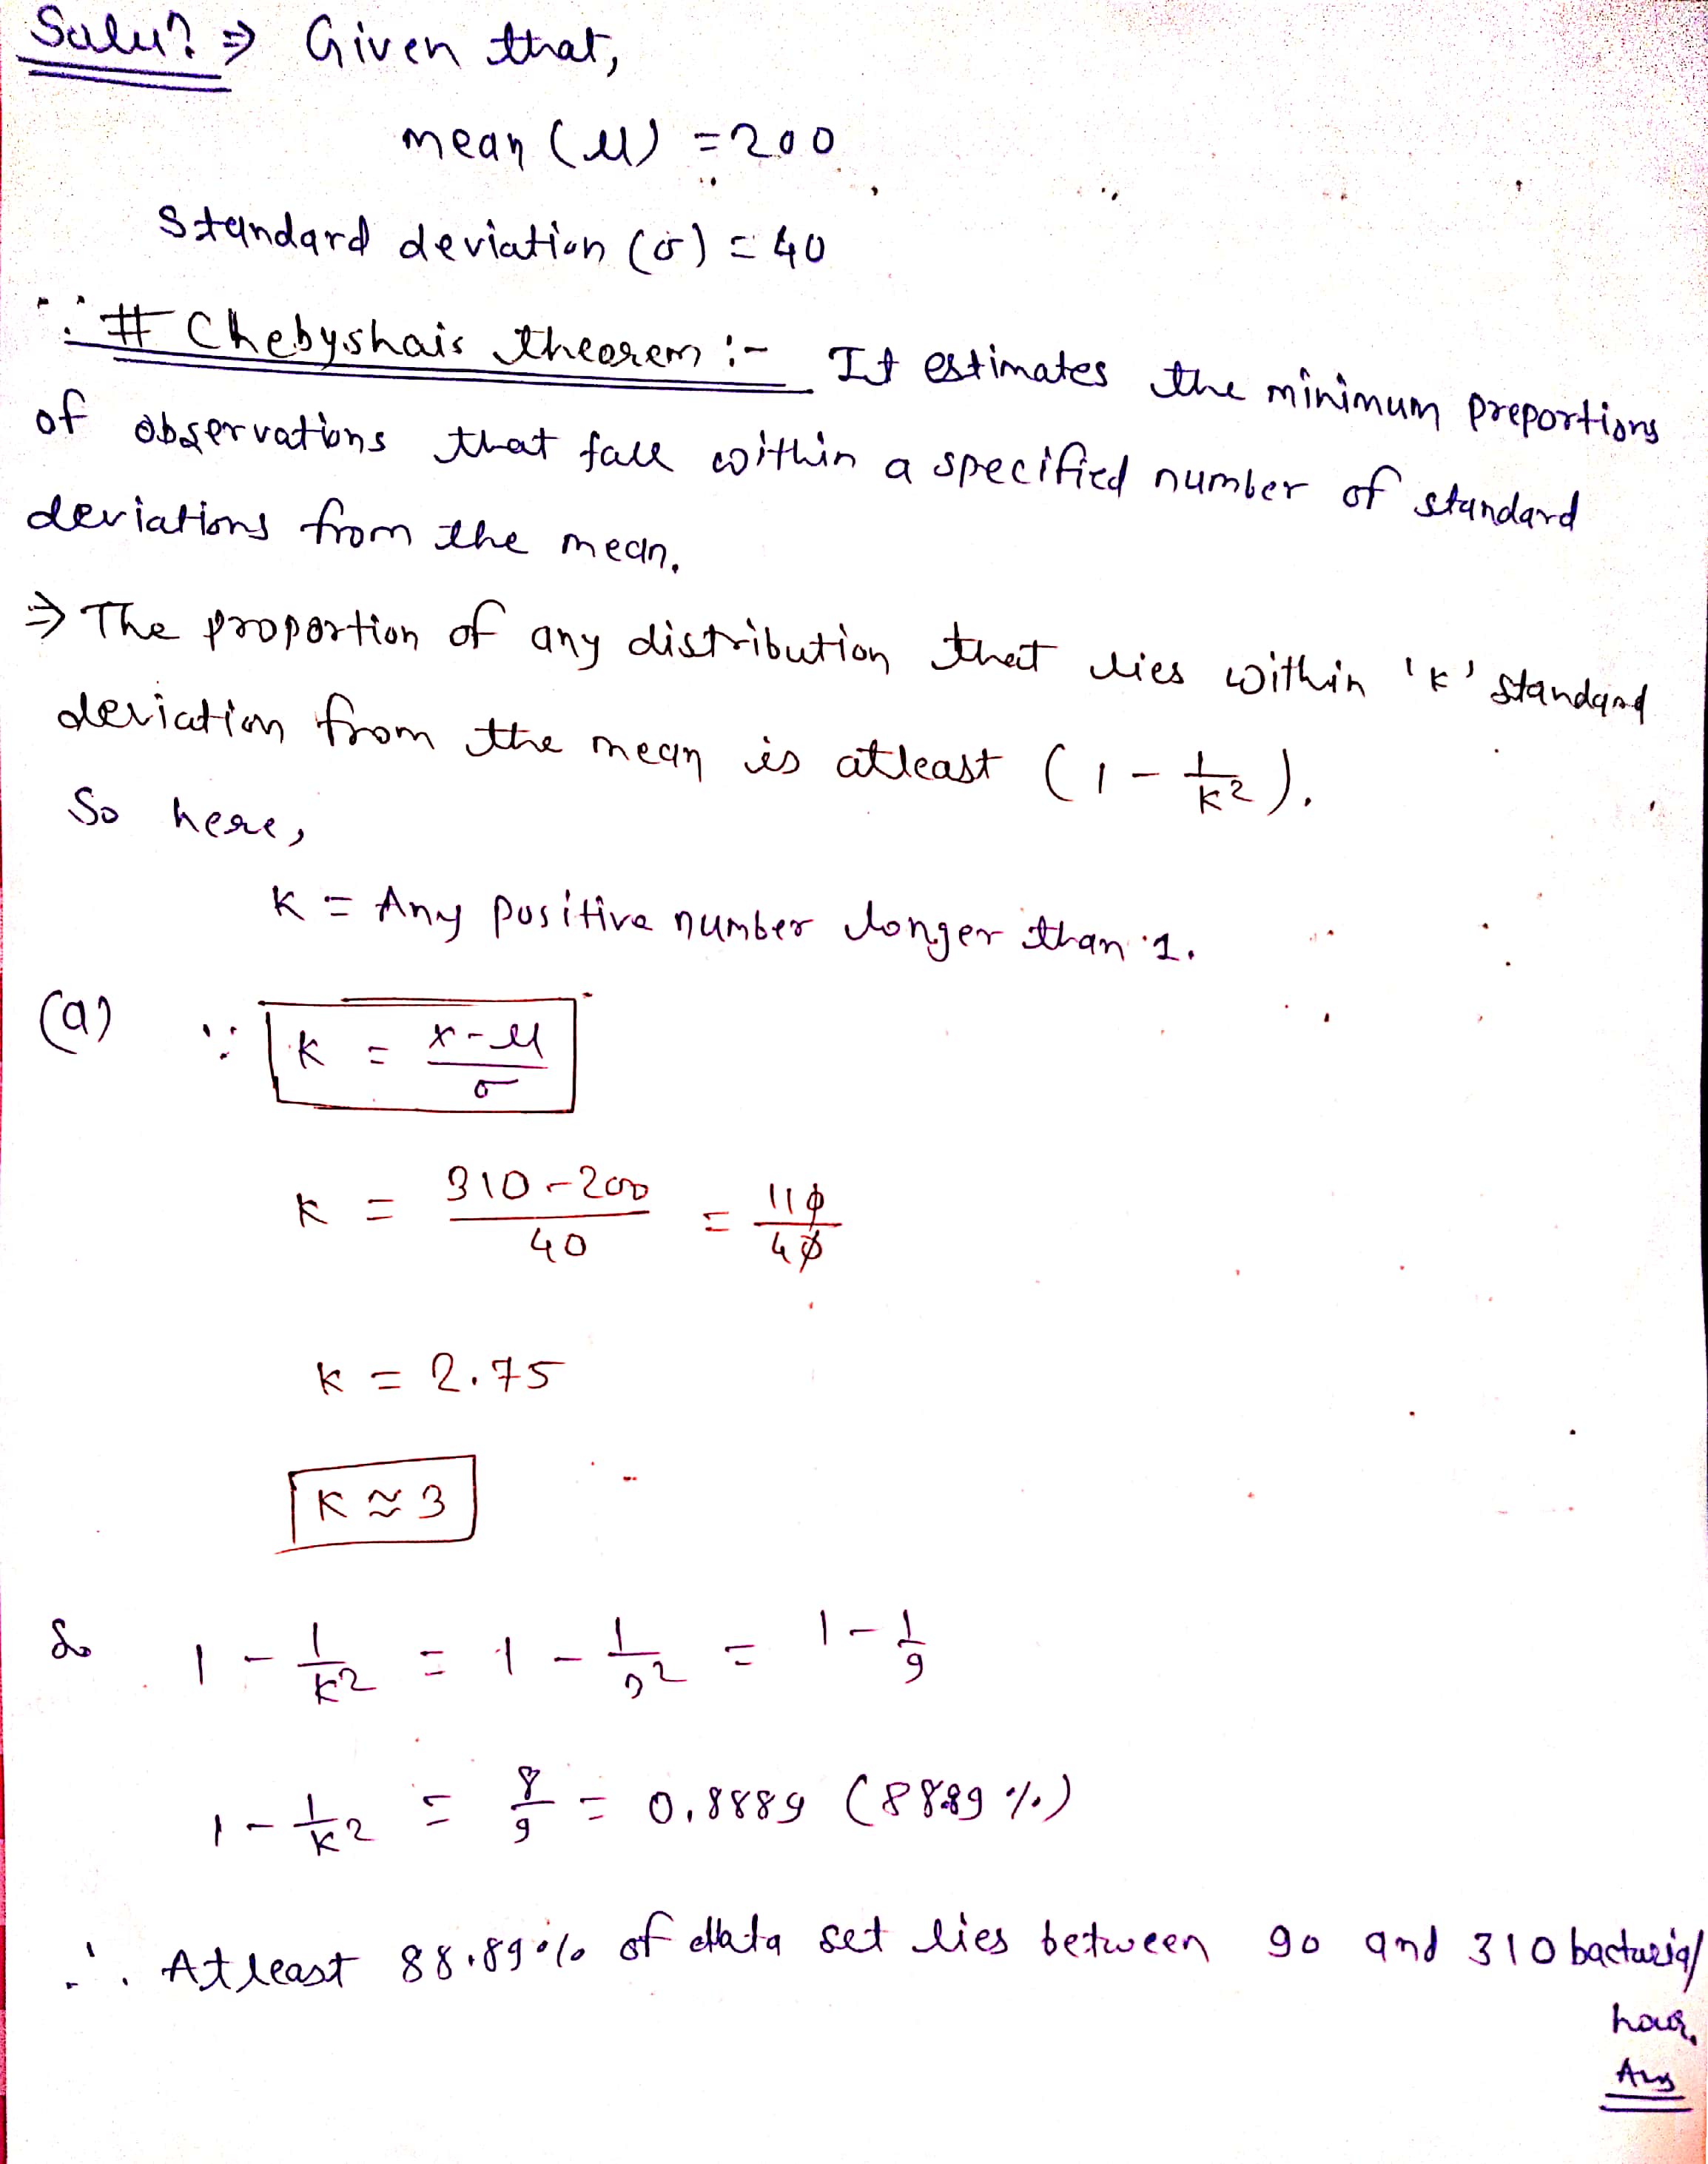 Solu? ⇒ Given that,
mean (μ) = 200
Standard deviation (σ) = 40
∵ # Chebyshais theorem :- It estimates the minimum preportions
of observations that fall within a specified number of standard
deviations from the mean.
⇒ The proportion of any distribution that lies within 'k' standard
deviation from the mean is atleast (1 - 1/k²).
So here,
K = Any positive number longer than 1.
(a) ∵ K = x-μ/σ
K = 310-200/40 = 110/40
K = 2.75
K ≈ 3
So 1 - 1/k² = 1 - 1/3² = 1 - 1/9
1 - 1/k² = 8/9 = 0.8889 (88.89 %)
∴ Atleast 88.89% of data set lies between 90 and 310 bacturial/
hour.
Ans